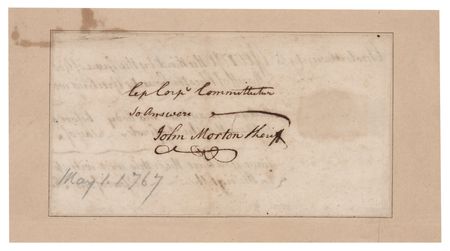 Cep Corps Committetur
So Answers
John Morton Sheriff
May 1. 1767